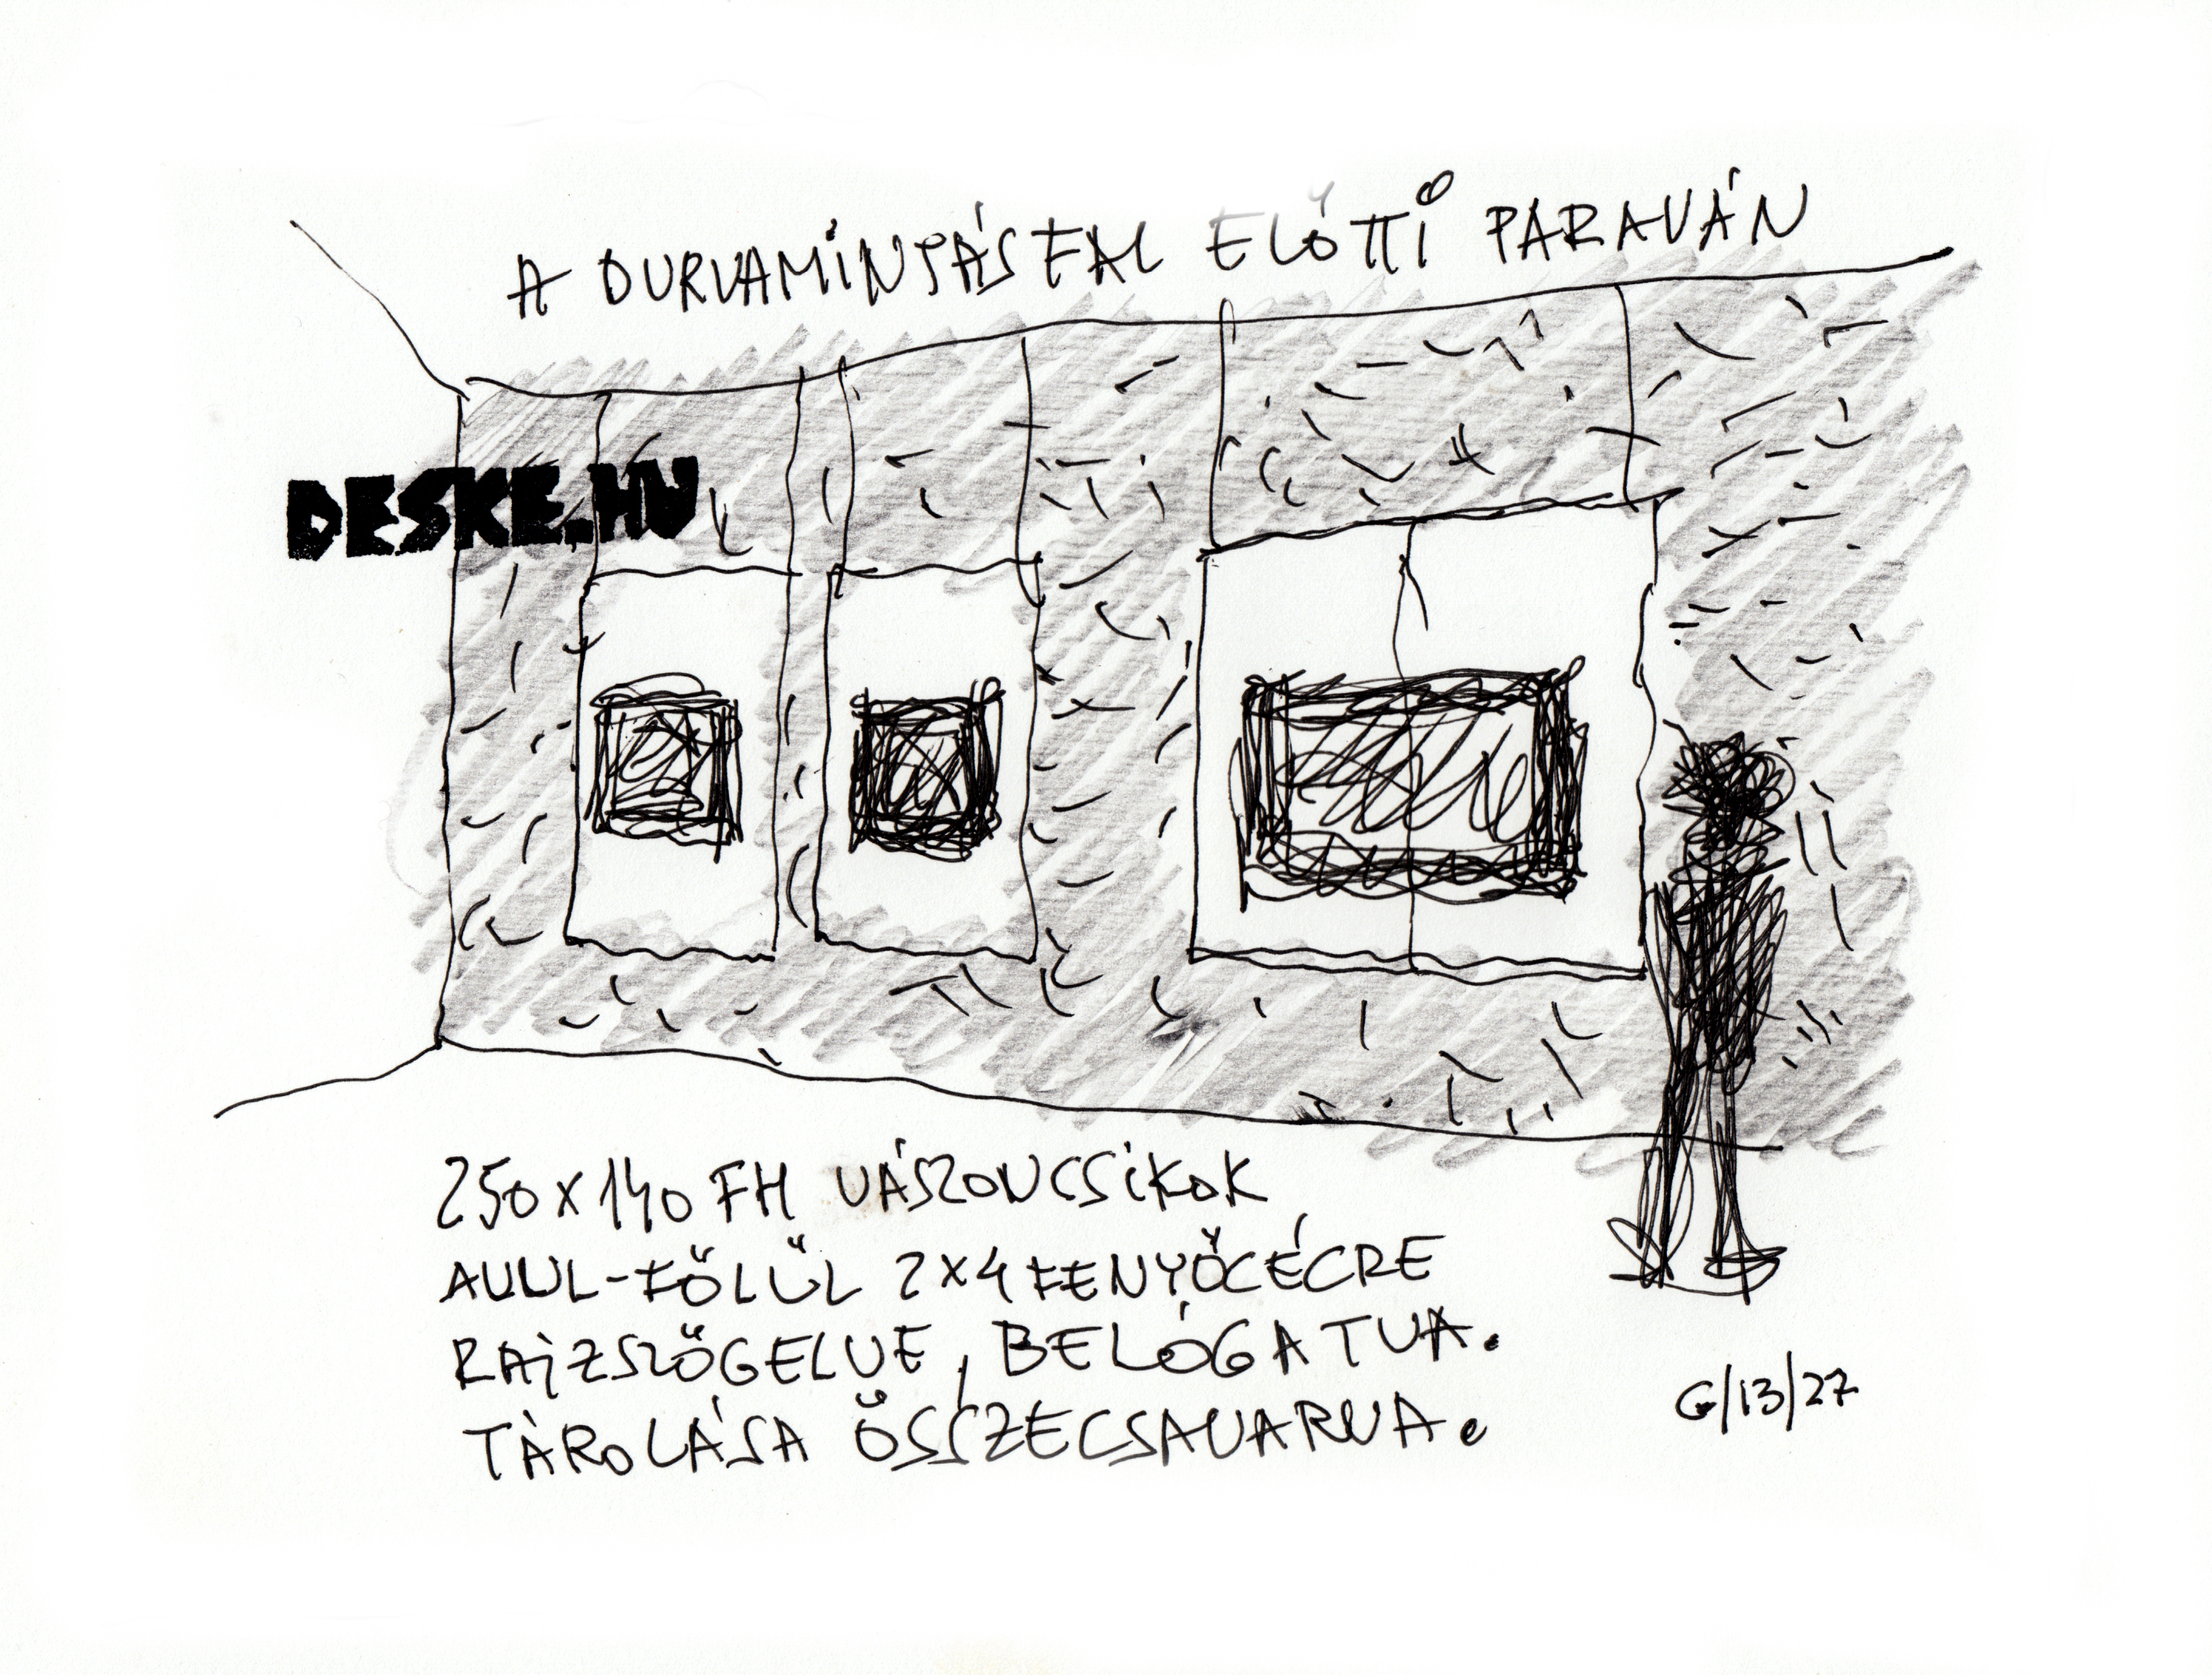 A DURVAMINTÁS FAL ELŐTTI PARAVÁN
DESKE.HU
250 x 140 FH VÁSZONCSIKOK
ALUL-FÖLÜL 2x4 FENYŐLÉCRE
RAJZSZÖGELVE, BELÓGATVA.
TÁROLÁSA ÖSSZECSAVARVA.
G/13/27